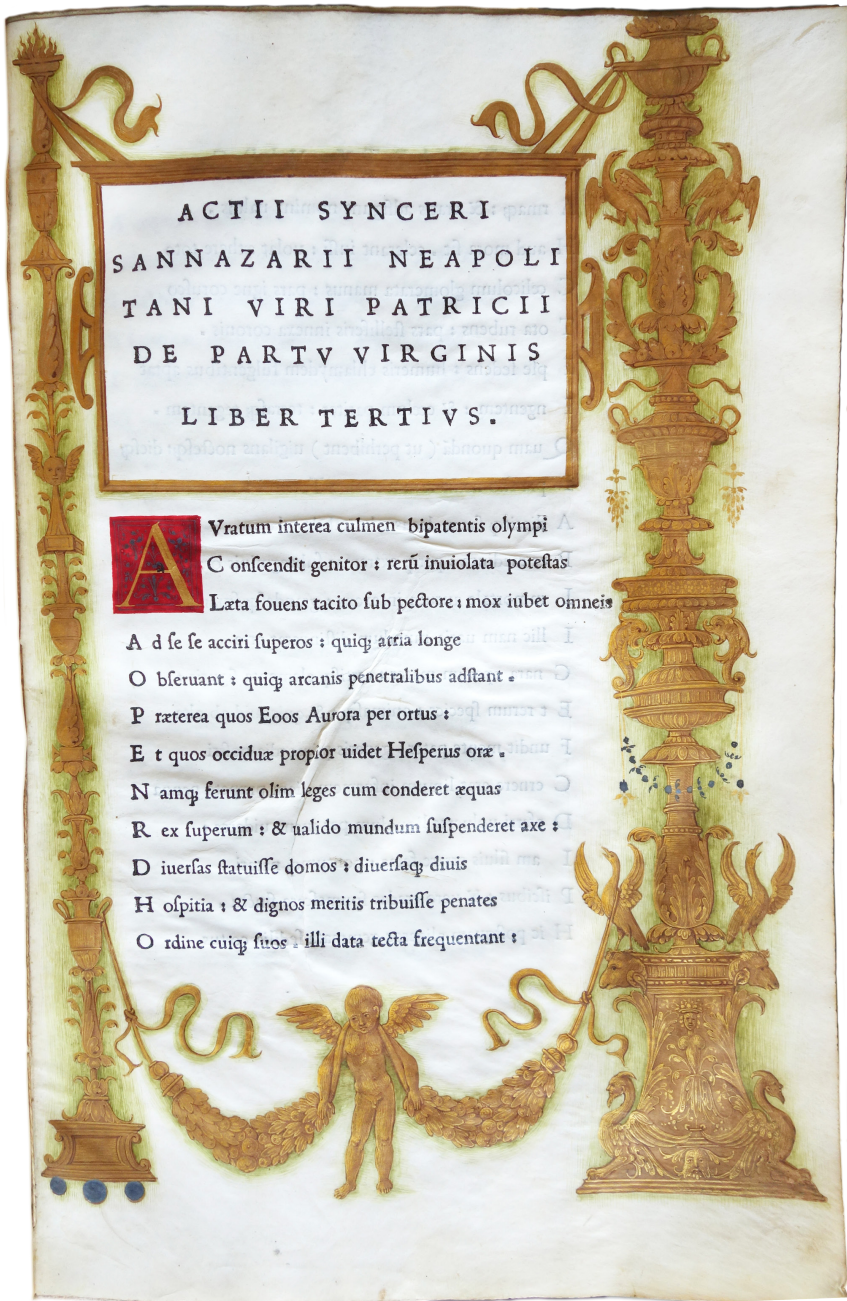 ACTII SYNCERI
SANNAZARII NEAPOLI
TANI VIRI PATRICII
DE PARTV VIRGINIS
LIBER TERTIVS.
AVratum interea culmen bipatentis olympi
C onſcendit genitor : rerū inuiolata poteſtas
Læta fouens tacito ſub pectore : mox iubet omneis
A d ſe ſe acciri ſuperos : quiqꝫ atria longe
O bſeruant : quiqꝫ arcanis penetralibus adſtant .
P ræterea quos Eoos Aurora per ortus :
E t quos occiduæ propior uidet Heſperus oræ .
N amqꝫ ferunt olim leges cum conderet æquas
R ex ſuperum : & ualido mundum ſuſpenderet axe :
D iuerſas ſtatuiſſe domos : diuerſaqꝫ diuis
H oſpitia : & dignos meritis tribuiſſe penates
O rdine cuiqꝫ ſuos . illi data tecta frequentant :